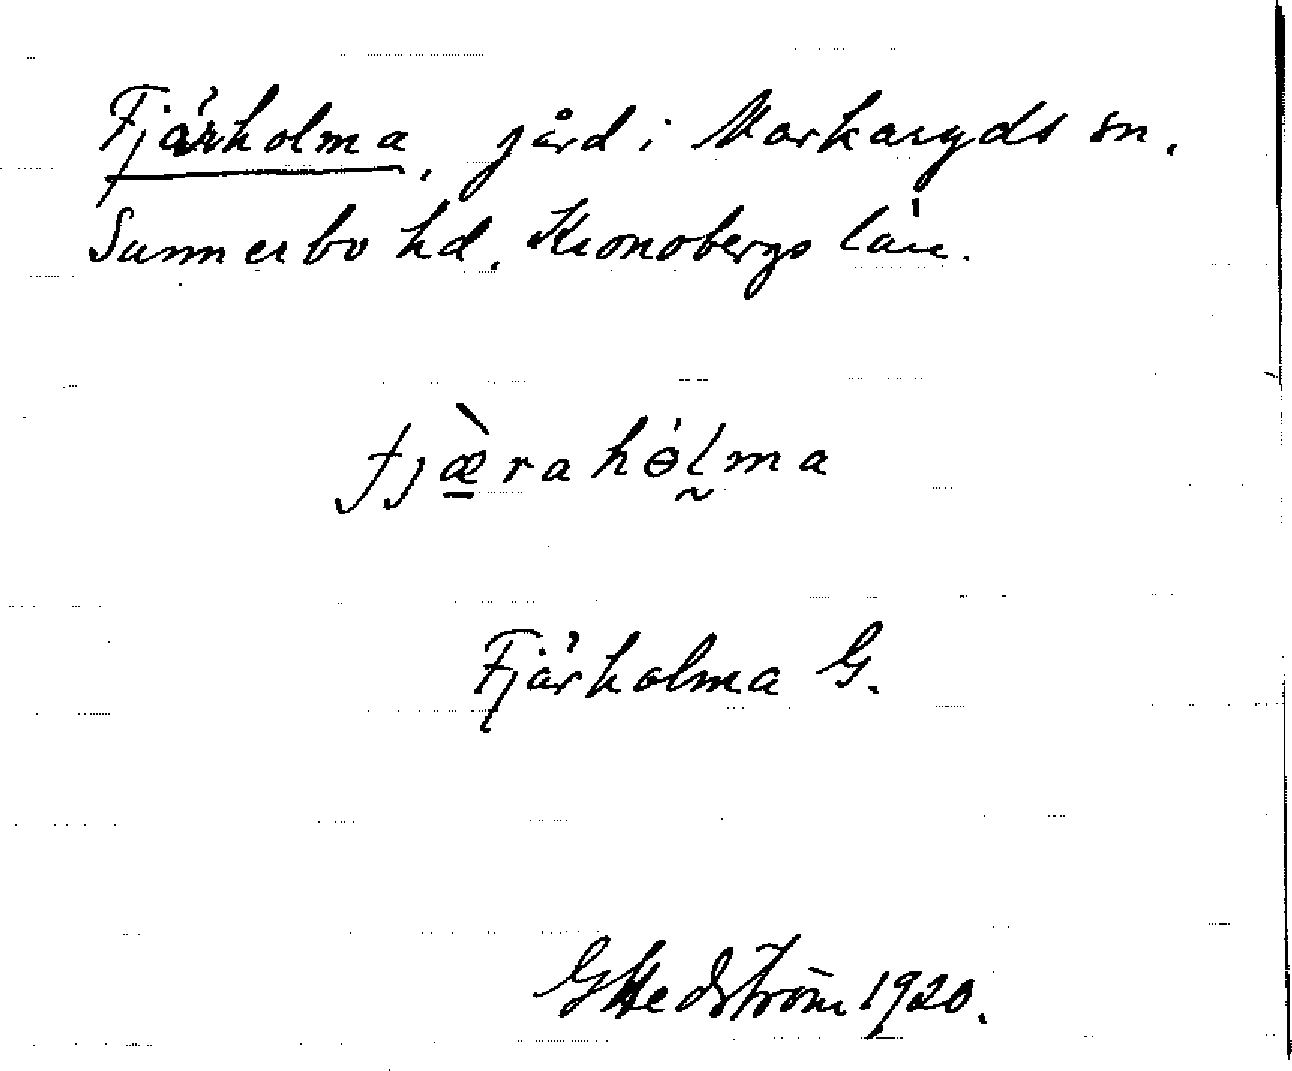 Fjärholma, gård i Markaryds sn.
Sunnerbo hd. Kronobergs län.
fjæ̠̀rahɵ́l̰ma
Fjärholma G.
G Hedström 1920.